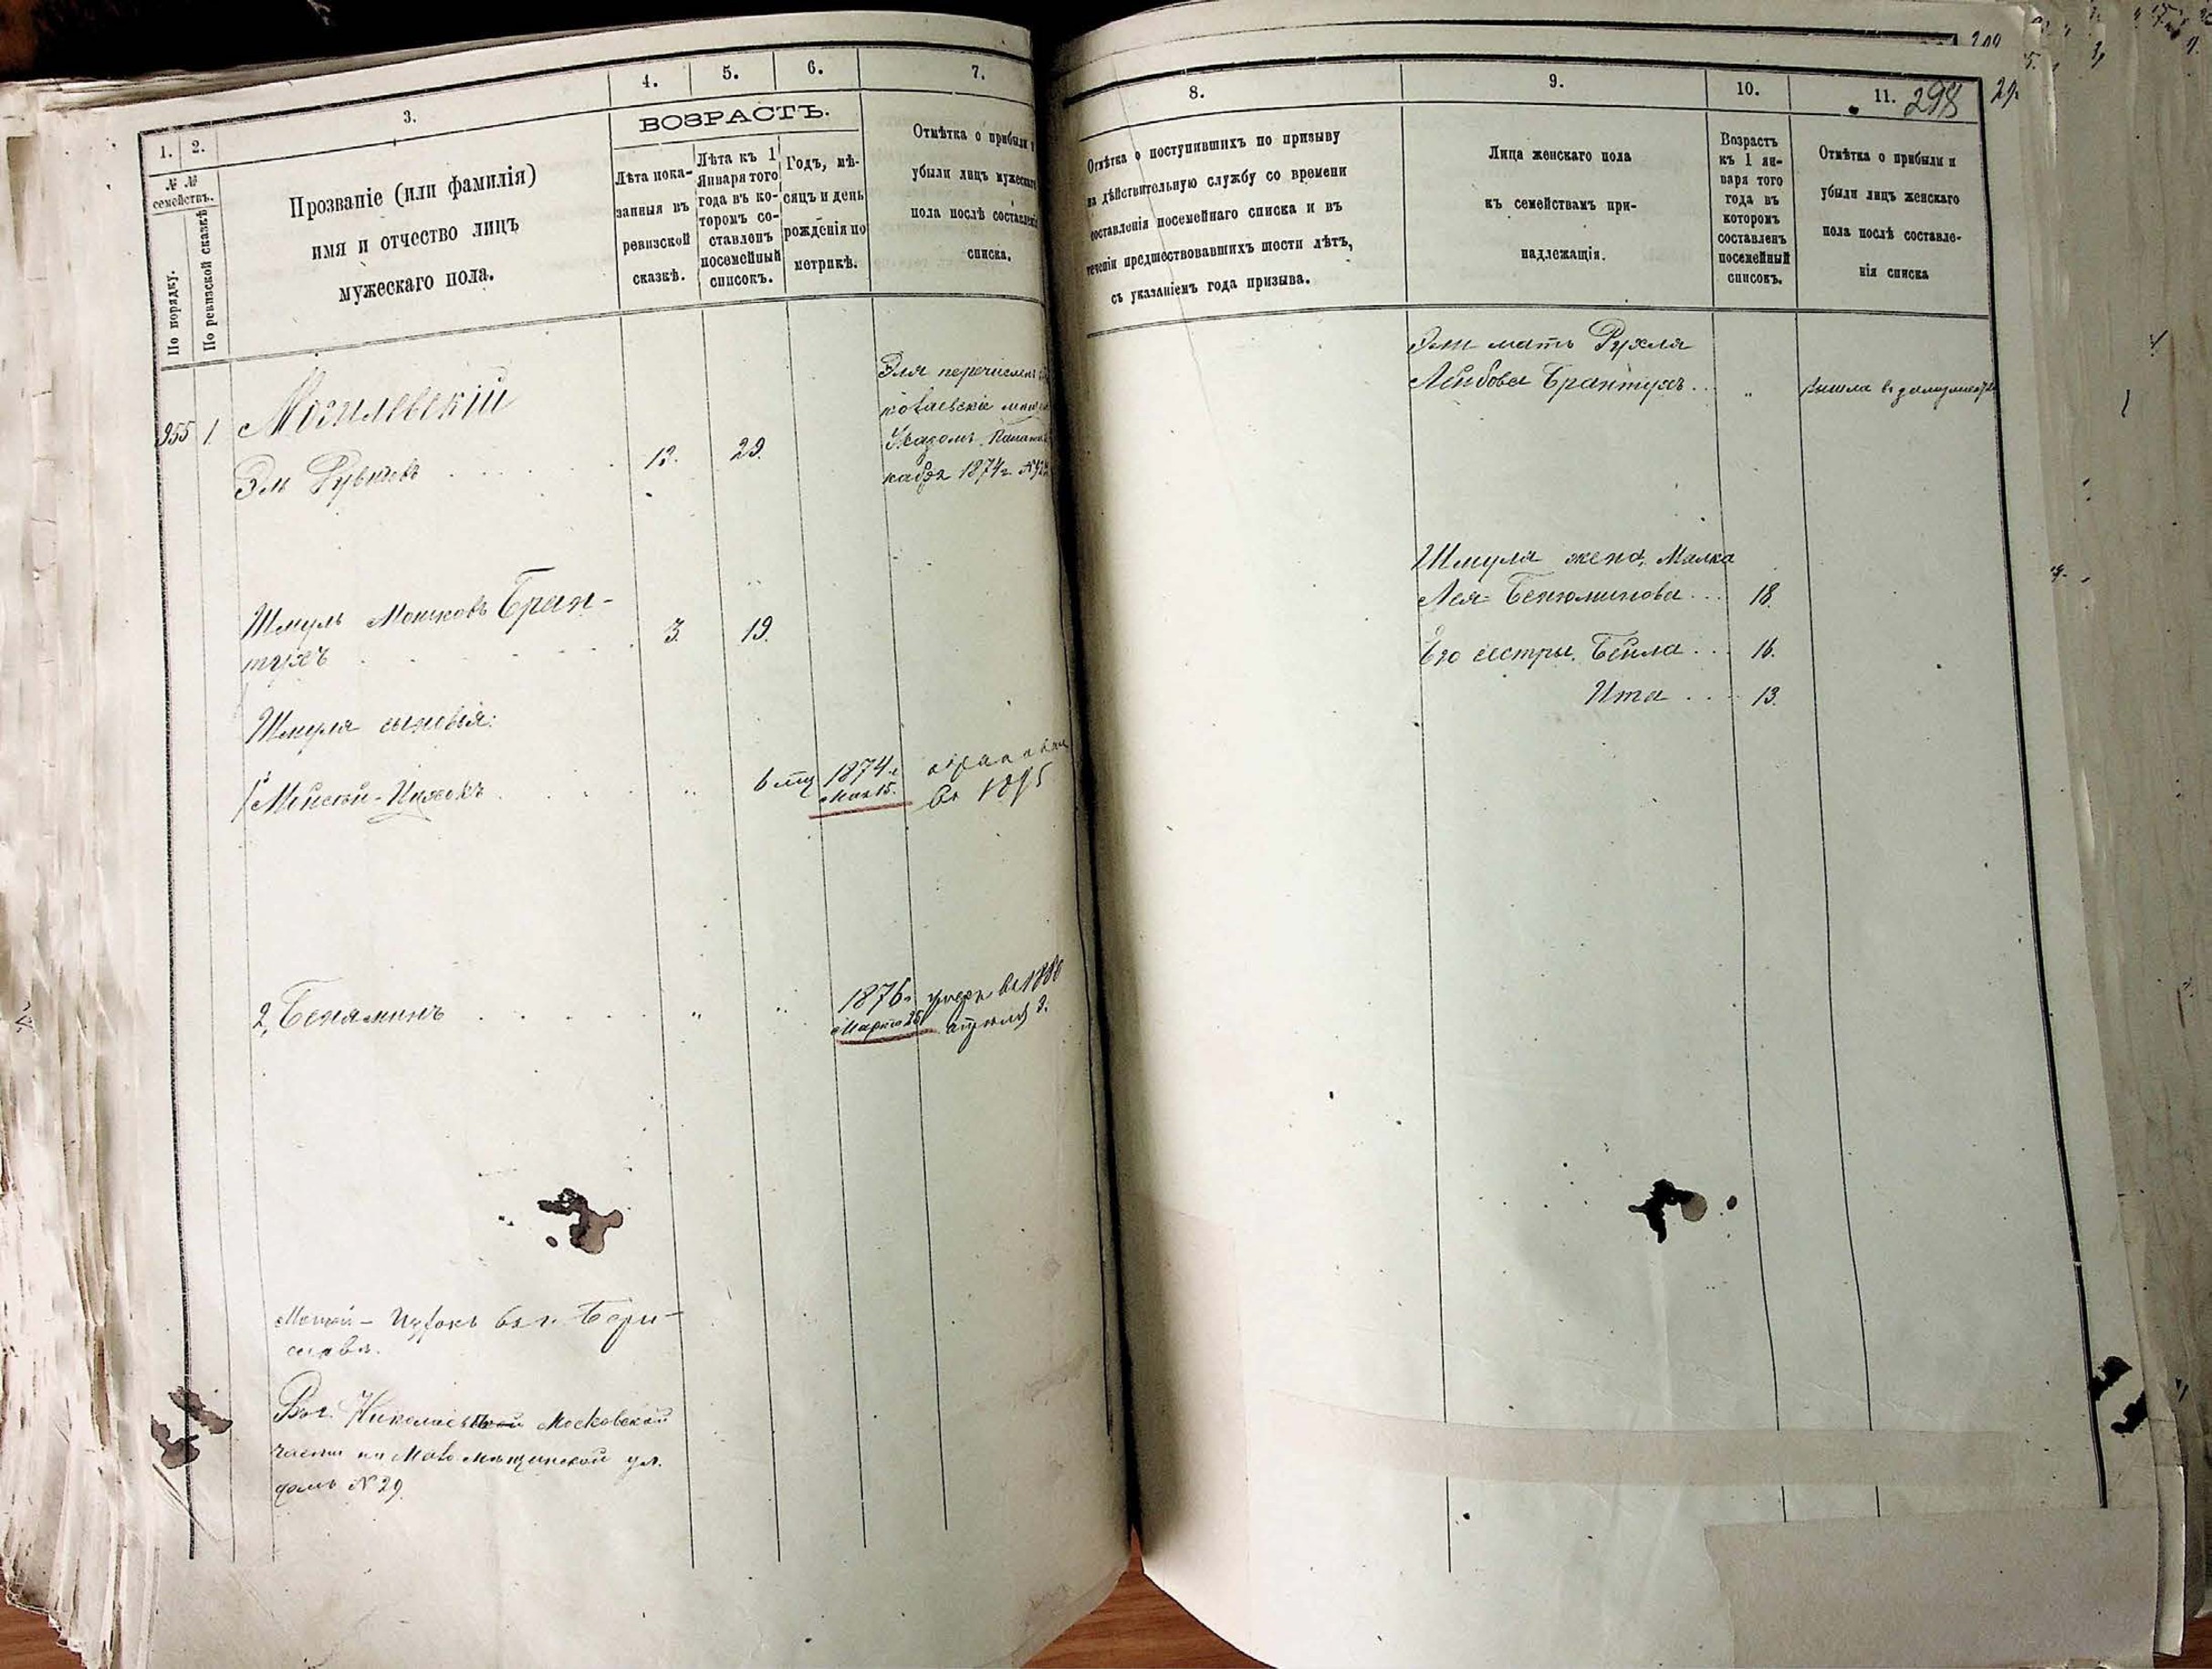 1.
2.
3.
4.
5.
6.
7.
№ №
семействъ.
По порядку.
По ревизской сказкѣ
Прозваніе (или фамилія)
имя и отчество лицъ
мужескаго пола.
ВОЗРАСТЪ.
Лѣта пока-
занныя въ
ревизской
сказкѣ.
Лѣта къ 1
Января того
года въ ко-
торомъ со-
ставленъ
посемейный
списокъ.
Годъ, мѣ-
сяцъ и день
рожденія по
метрикѣ.
Отмѣтка о прибыли и
убыли лицъ мужескаго
пола послѣ составленія
списка.
955 1 Могилевскій
Эль Рувиновъ 12. 29.
Эля перечисленъ
мѣщ
Указомъ
кабря 1874 г. №
Шмуль Мошковъ Бран-
тухъ 3. 19.
Шмуля сыновья:
1 Мойсей-Ицхокъ " 6 мц 1874 г.
Мая 15.
въ 1895
2, Бенямин " " 1876 г. умеръ въ
Марта 25 апрѣля 2.
Мошей - Ицхокъ въ г. Бери-
славѣ.
Въ г. Николаевѣ Московской
части на Мало Мѣщанской ул.
домъ № 29
8.
9.
10.
11. 298
Отмѣтка о поступившихъ по призыву
на дѣйствительную службу со времени
составленія посемейнаго списка и въ
теченіи предшествовавшихъ шести лѣтъ,
съ указаніемъ года призыва.
Лица женскаго пола
къ семействамъ при-
надлежащія.
Возрастъ
къ 1 ян-
варя того
года въ
которомъ
составленъ
посемейный
списокъ.
Отмѣтка о прибыли и
убыли лицъ женскаго
пола послѣ составле-
нія списка
Эли мать Рухля
Лейбова Брантухъ . . " вышла въ замужество
Шмуля жена, Малка
Лея Бенюминова . . . 18.
Его сестры, Бейла . . . 16.
Ита . . . 13.